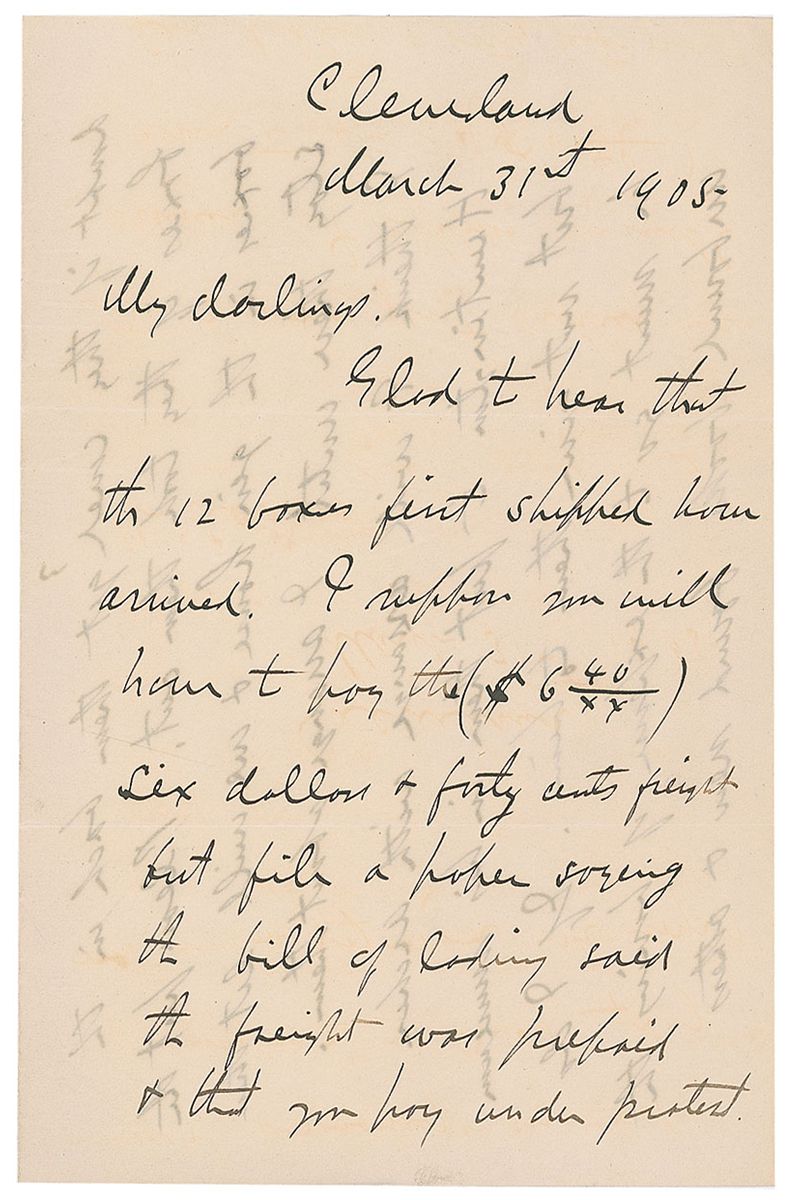 Cleveland
March 31st 1905-
My darlings.
Glad to hear that
the 12 boxes first shipped have
arrived. I suppose you will
have to pay the ($6 40/xx)
Six dollars & forty cents freight
but file a paper saying
the bill of lading said
the freight was prepaid
& that you pay under protest.